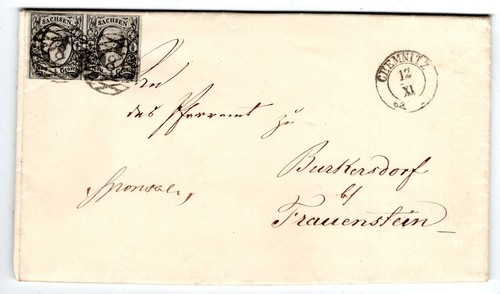 SACHSEN SACHSEN
CHEMNITZ
12
XI
An
das Pfarramt zu
Burkersdorf
b/
Frauenstein
Sponsal.